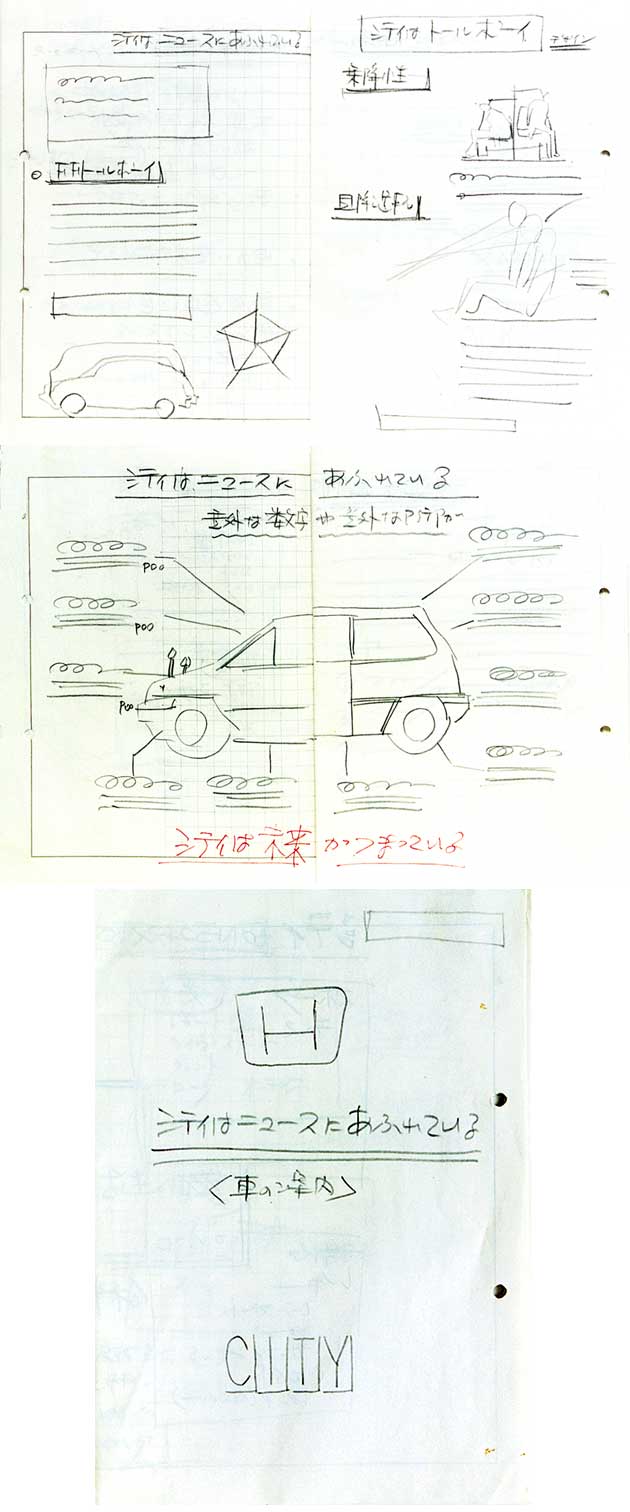 シティはニュースにあふれている
FFトールボーイ
シティはトールボーイ
デザイン
乗降性
シティはニュースに あふれている
意外な数字や意外なアイデアが
P00
P00
P00
シティは未来がつまっている
H
シティはニュースにあふれている
〈車のご案内〉
CITY